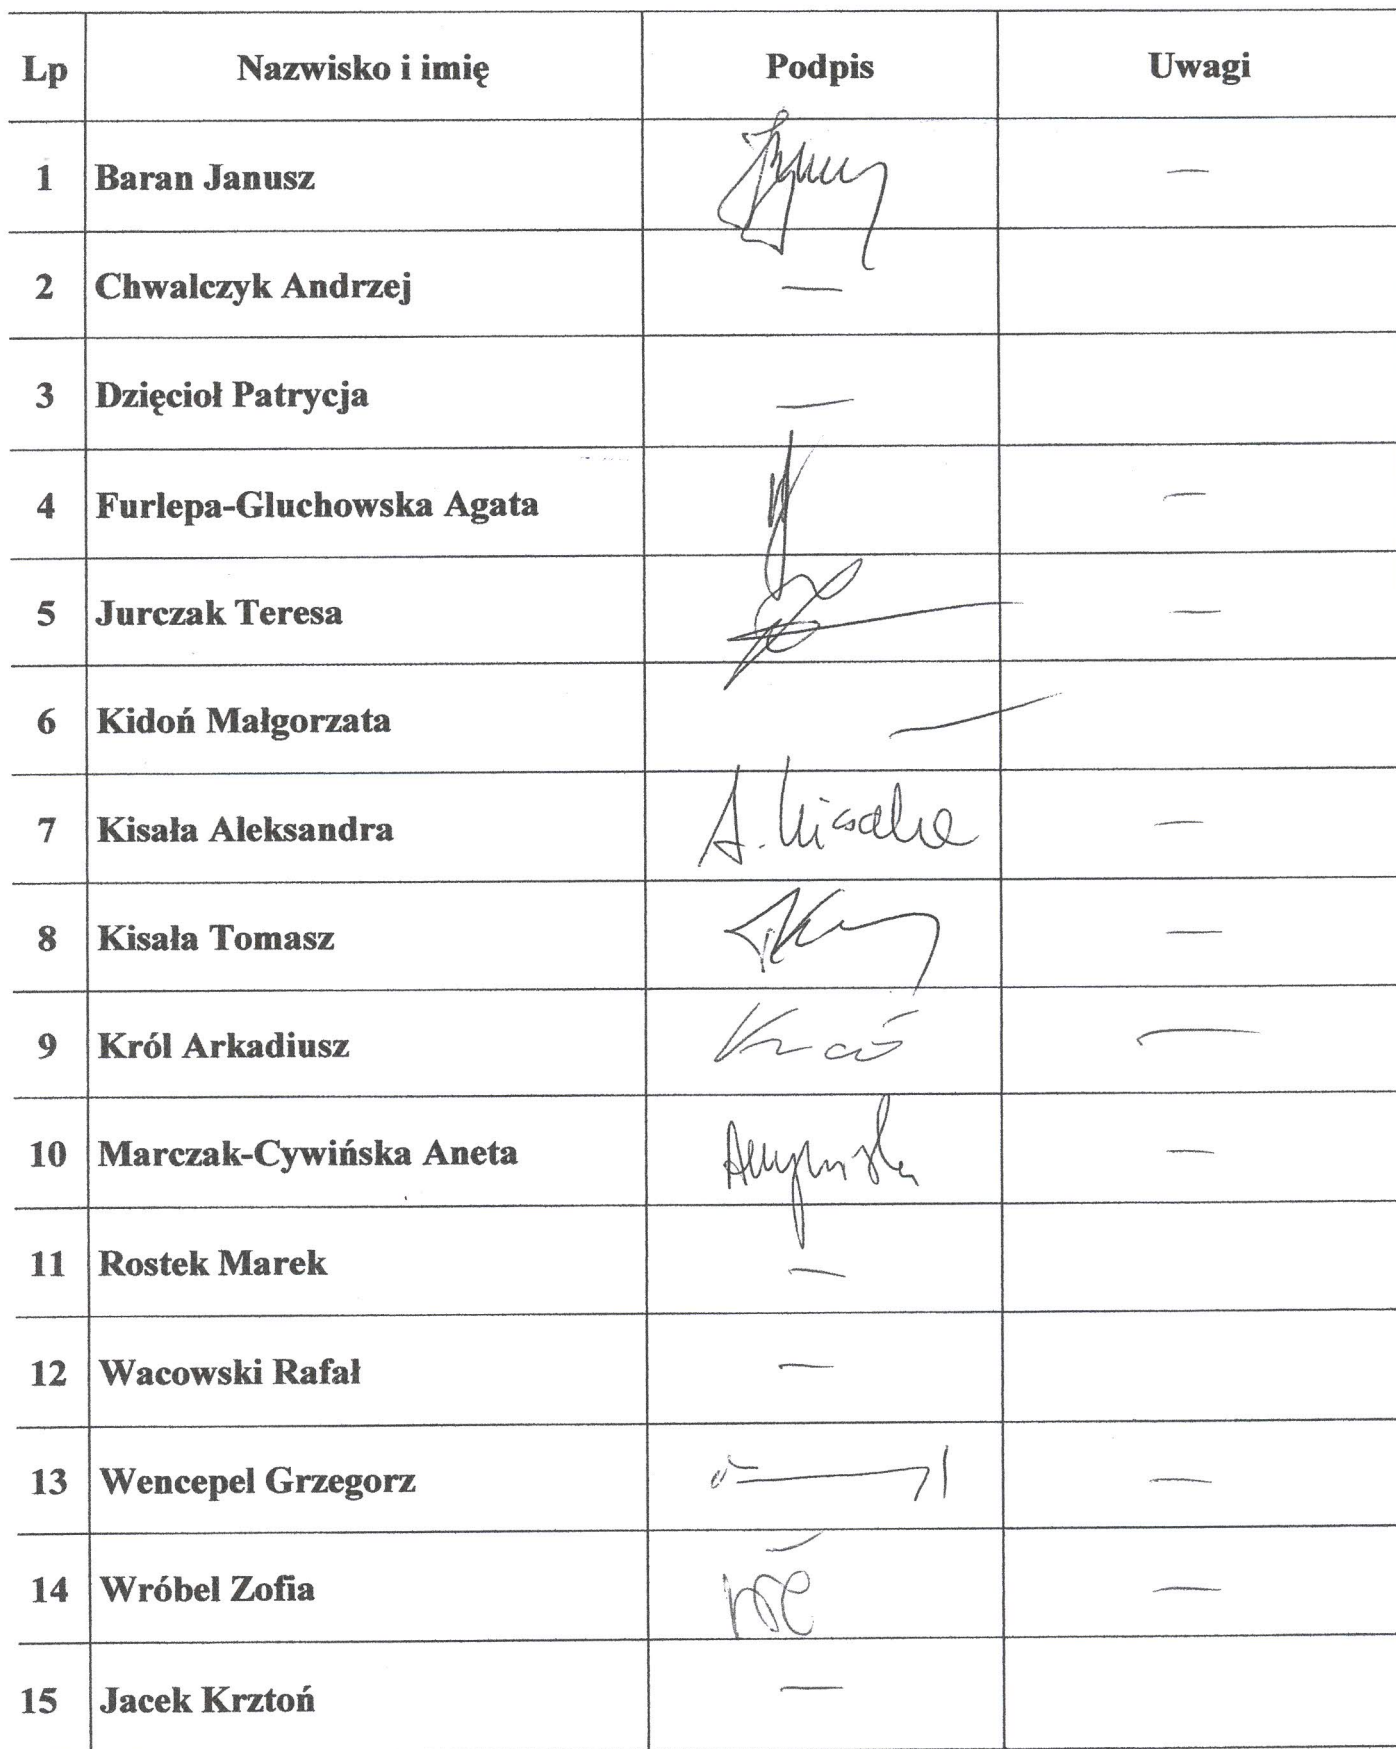 Lp Nazwisko i imię Podpis Uwagi
1 Baran Janusz —
2 Chwalczyk Andrzej —
3 Dzięcioł Patrycja —
4 Furlepa-Gluchowska Agata —
5 Jurczak Teresa —
6 Kidoń Małgorzata —
7 Kisała Aleksandra A. Kisała —
8 Kisała Tomasz —
9 Król Arkadiusz —
10 Marczak-Cywińska Aneta —
11 Rostek Marek —
12 Wacowski Rafał —
13 Wencepel Grzegorz —
14 Wróbel Zofia —
15 Jacek Krztoń —